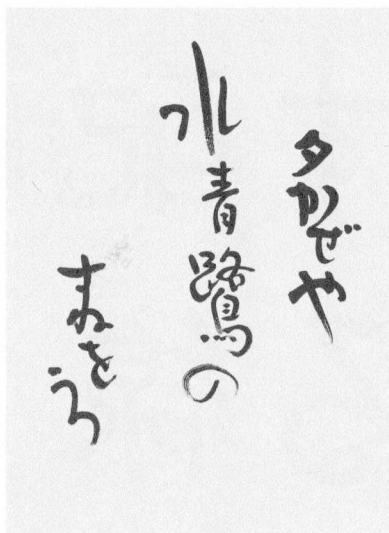 夕かぜや
水青鷺の
すねをうつ